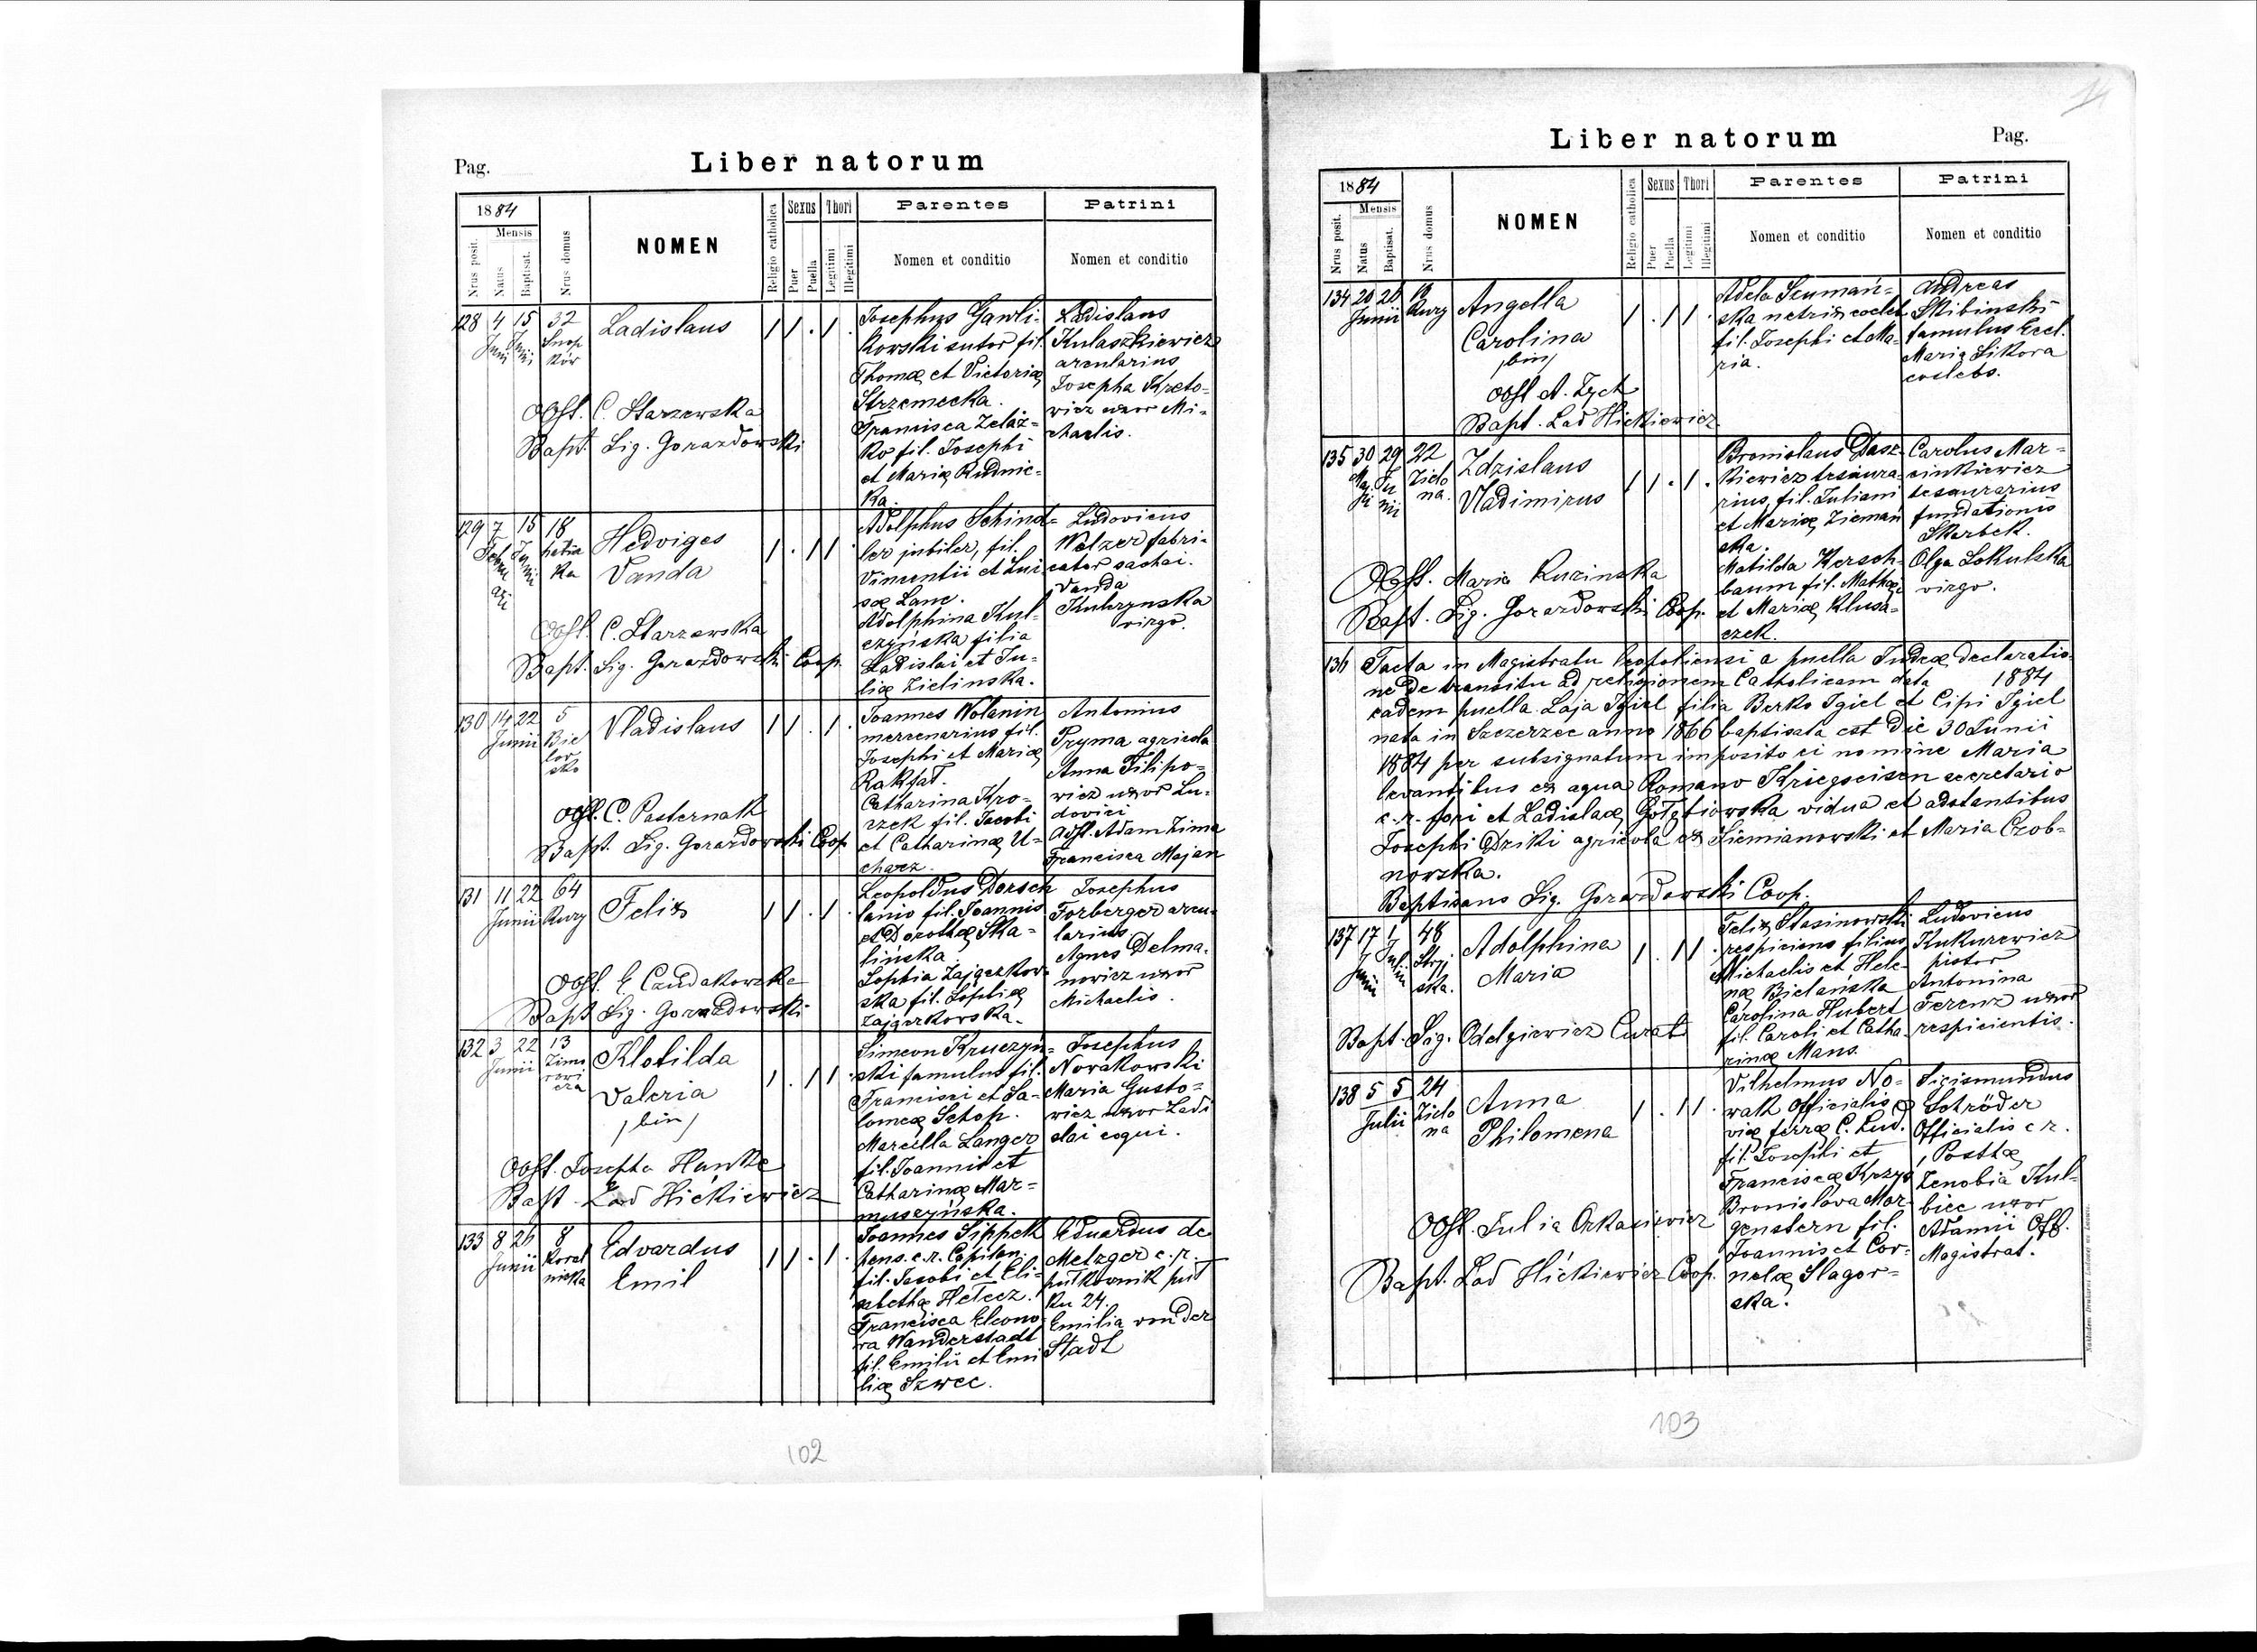 Pag. Liber natorum
1884
Mensis
Nrus posit.
Natus
Baptisat.
Nrus domus
NOMEN
Religio catholica
Sexus
Puer
Puella
Thori
Legitimi
Illegitimi
Parentes
Nomen et conditio
Patrini
Nomen et conditio
128 4 15 32
Junii Junii Snop
ków
Ladislaus
1 1 . 1 .
Obst. C. Starzewska
Bapt. Sig. Gorazdowski
Josephus Gawli-
kowski sutor fil.
Thomæ et Victoriæ
Strzemecka.
Francisca Zeláz-
ko fil. Josephi
et Mariæ Rudnic-
ka.
Ladislaus
Kulaszkiewicz
arcularius
Josepha Kreto-
wicz uxor Mi-
chaelis.
129 7 15 18
Hedviges
Vanda
1 . 1 1 .
Obst. C. Starzewska
Bapt. Sig. Gorazdowski Coop.
Adolphus Schind-
ler jubiler, fil.
Vincentii et Lui
sæ Lanc.
Adolphina Kul-
czyńska filia
Ladislai et Ju-
liæ Zielinska.
Ludovicus
Welzer fabri-
cator sachai.
Vanda
Kulczynska
virgo.
130 14 22 5
Junii Bie
lov
sko
Vladislaus
1 1 . 1 .
Obst. C. Pasternak
Bapt. Sig. Gorazdowski Coop
Joannes Wolanin
mercenarius fil.
Josephi et Mariæ
Rakfat.
Catharina Kro-
czek fil. Jacobi
et Catharinæ U-
charz.
Antonius
Pryma agricola
Anna Filipo-
wicz uxor Lu-
dovici
Adst. Adam Zima
Francisca Majan
131 11 22 64
Junii Kurg
Felix
1 1 . 1 .
Obst. E. Czudakowska
Bapt Sig. Gorazdowski
Leopoldus Dorsch
lanio fil. Joannis
et Dorotheæ Ska-
lińska
Sophia Zajączkow-
ska fil. Sophiæ
Zajączkowska.
Josephus
Forberger arcu-
larius.
Agnes Delma-
nowicz uxor
Michaelis.
132 3 22 13
Junii Zimo
rowi
cza
Klotilda
Valeria
/bin/
1 . 1 1 .
Obst. Josepha Hanke
Bapt. Lad Hickiewicz
Simeon Kruczyń-
ski famulus fil.
Francisci et Sa-
lomeæ Schop.
Marcella Langer
fil. Joannis et
Catharinæ Mar-
muszyńska.
Josephus
Novakowski
Maria Gusto-
wicz uxor Ladi
slai coqui.
133 8 26 8
Junii Koral
nicka
Edvardus
Emil
1 1 . 1 .
Joannes Sippek
pens. c.r. Capitan.
fil. Jacobi et Eli-
sabethæ Helecz.
Francisca Eleono
ra Wanderstadt
fil. Emilii et Emi
liæ Szwec.
Eduardus de
Metzger c. r.
pułkownik puł
ku 24.
Emilia von der
Stadt
102
Liber natorum Pag.
1884
Mensis
Nrus posit.
Natus
Baptisat.
Nrus domus
NOMEN
Religio catholica
Sexus
Puer
Puella
Thori
Legitimi
Illegitimi
Parentes
Nomen et conditio
Patrini
Nomen et conditio
134 20 26 18
Junii Kurg
Angella
Carolina
/bin/
1 . 1 1 .
Obst A. Zych
Bapt. Lad Hickiewicz
Adela Szumań-
ska netrix coeleb
fil. Josephi et Ma-
ria.
Andreas
Skibinski
famulus Eccl.
Maria Sikora
coelebs.
135 30 29 22
Maji Junii Zielo
na.
Zdzislaus
Vladimirus
1 1 . 1 .
Obst. Maria Kuzinska
Bapt. Sig. Gorazdowski Coop.
Bronislaus Dasz-
kiewicz tesaura-
rius, fil. Juliani
et Mariæ Zieman
ska.
Matilda Kersch-
baum fil. Mathæi
et Mariæ Klusa-
czek.
Carolus Mar-
cinkiewicz
tesaurarius
fundationis
Skarbek.
Olga Sokulska
virgo.
136 Facta in Magistratu leopoliensi a puella Judæa declaratio-
ne de transitu ad religionem Catholicam data 1884
eadem puella Laja Igiel filia Berko Igiel et Cipi Igiel
nata in Szczerzec anno 1866 baptisata est die 30 Junii
1884 per subsignatum imposito ei nomine Maria
levantibus ex aqua Romano Kriegseisen secretario
c. r. fori et Ladislaæ Gołębiowska vidua et adstantibus
Josephi Dziki agricola ex Siemianowski et Maria Czob-
nowska.
Baptisans Sig. Gorazdowski Coop.
137 17 1 48
Junii Julii Stryj
ska.
Adolphina
Maria
1 . 1 1 .
Bapt. Sig. Odelgiewicz Curat
Felix Stasinowski
respiciens filius
Michaelis et Hele-
næ Bielanska
Carolina Hubert
fil. Caroli et Catha-
rinæ Mans.
Ludovicus
Kukurewicz
pistor
Antonina
Ferenz uxor
respicientis.
138 5 5 24
Julii Zielo
na
Anna
Philomena
1 . 1 1 .
Obst. Julia Orkasiewicz
Bapt. Lad Hickiewicz Coop.
Vilhelmus No-
wak Officialis
viæ ferræ C. Lud.
fil. Josephi et
Franciscæ Krzyż
Bronislava Mor-
genstern fil.
Joannis et Cor-
nelæ Slagor-
ska.
Sigismundus
Schröder
Officialis c r.
Posthæ
Zenobia Kul-
biec uxor
Adamii Off.
Magistrat.
103